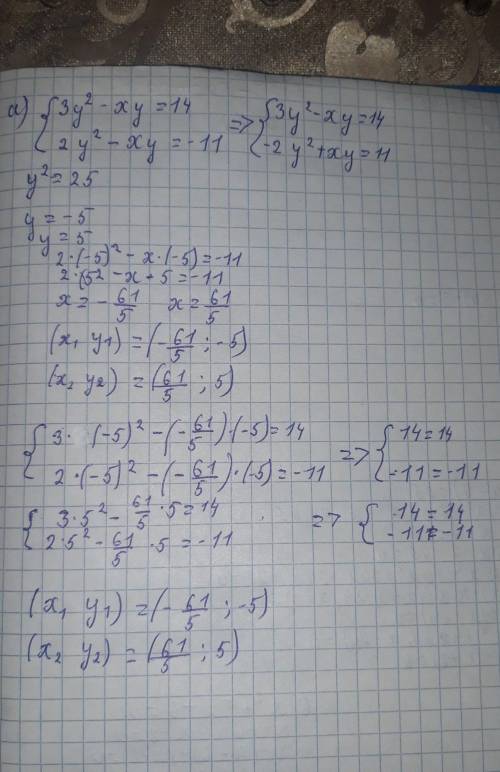 а) { 3y² - xy = 14 => { 3y² - xy = 14
2y² - xy = -11 -2y² + xy = 11
y² = 25
y = -5
y = 5
2·(-5)² - x·(-5) = -11
2·(5² - x · 5 = -11
x = - 61/5 x = 61/5
(x₁ y₁) = (- 61/5 ; -5)
(x₂ y₂) = (61/5 ; 5)
{ 3· (-5)² - (- 61/5)·(-5) = 14 => { 14 = 14
2·(-5)² - (- 61/5)·(-5) = -11 -11 = -11
{ 3·5² - 61/5 · 5 = 14 => { 14 = 14
2·5² - 61/5 · 5 = -11 -11 = -11
(x₁ y₁) = (- 61/5 ; -5)
(x₂ y₂) = (61/5 ; 5)